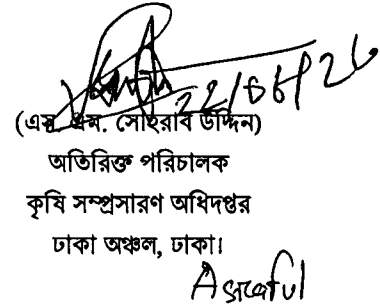 22/06/26
(এস. এম. সোহরাব উদ্দিন)
অতিরিক্ত পরিচালক
কৃষি সম্প্রসারণ অধিদপ্তর
ঢাকা অঞ্চল, ঢাকা।